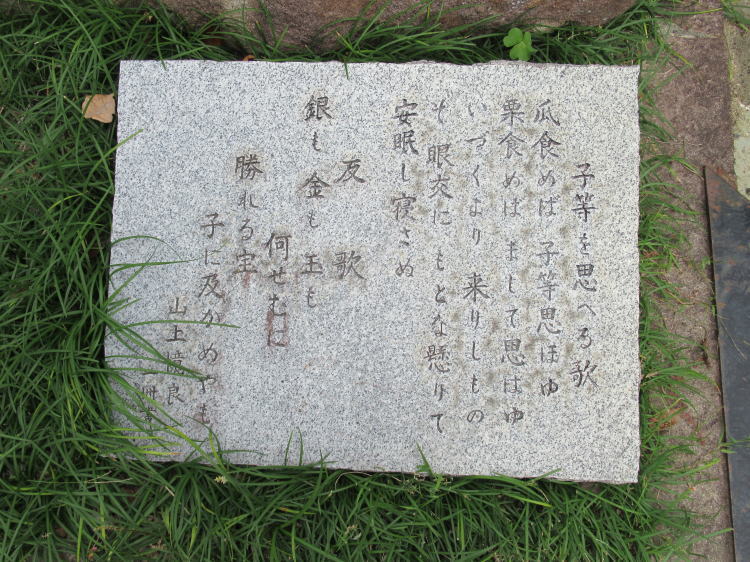 子等を思へる歌
瓜食めば 子等思ほゆ
栗食めば まして思はゆ
いづくより 来りしもの
そ 眼交に もとな懸りて
安眠し寝さぬ
反歌
銀も金も玉も
何せむに
勝れる宝
子に及かめやも
山上憶良